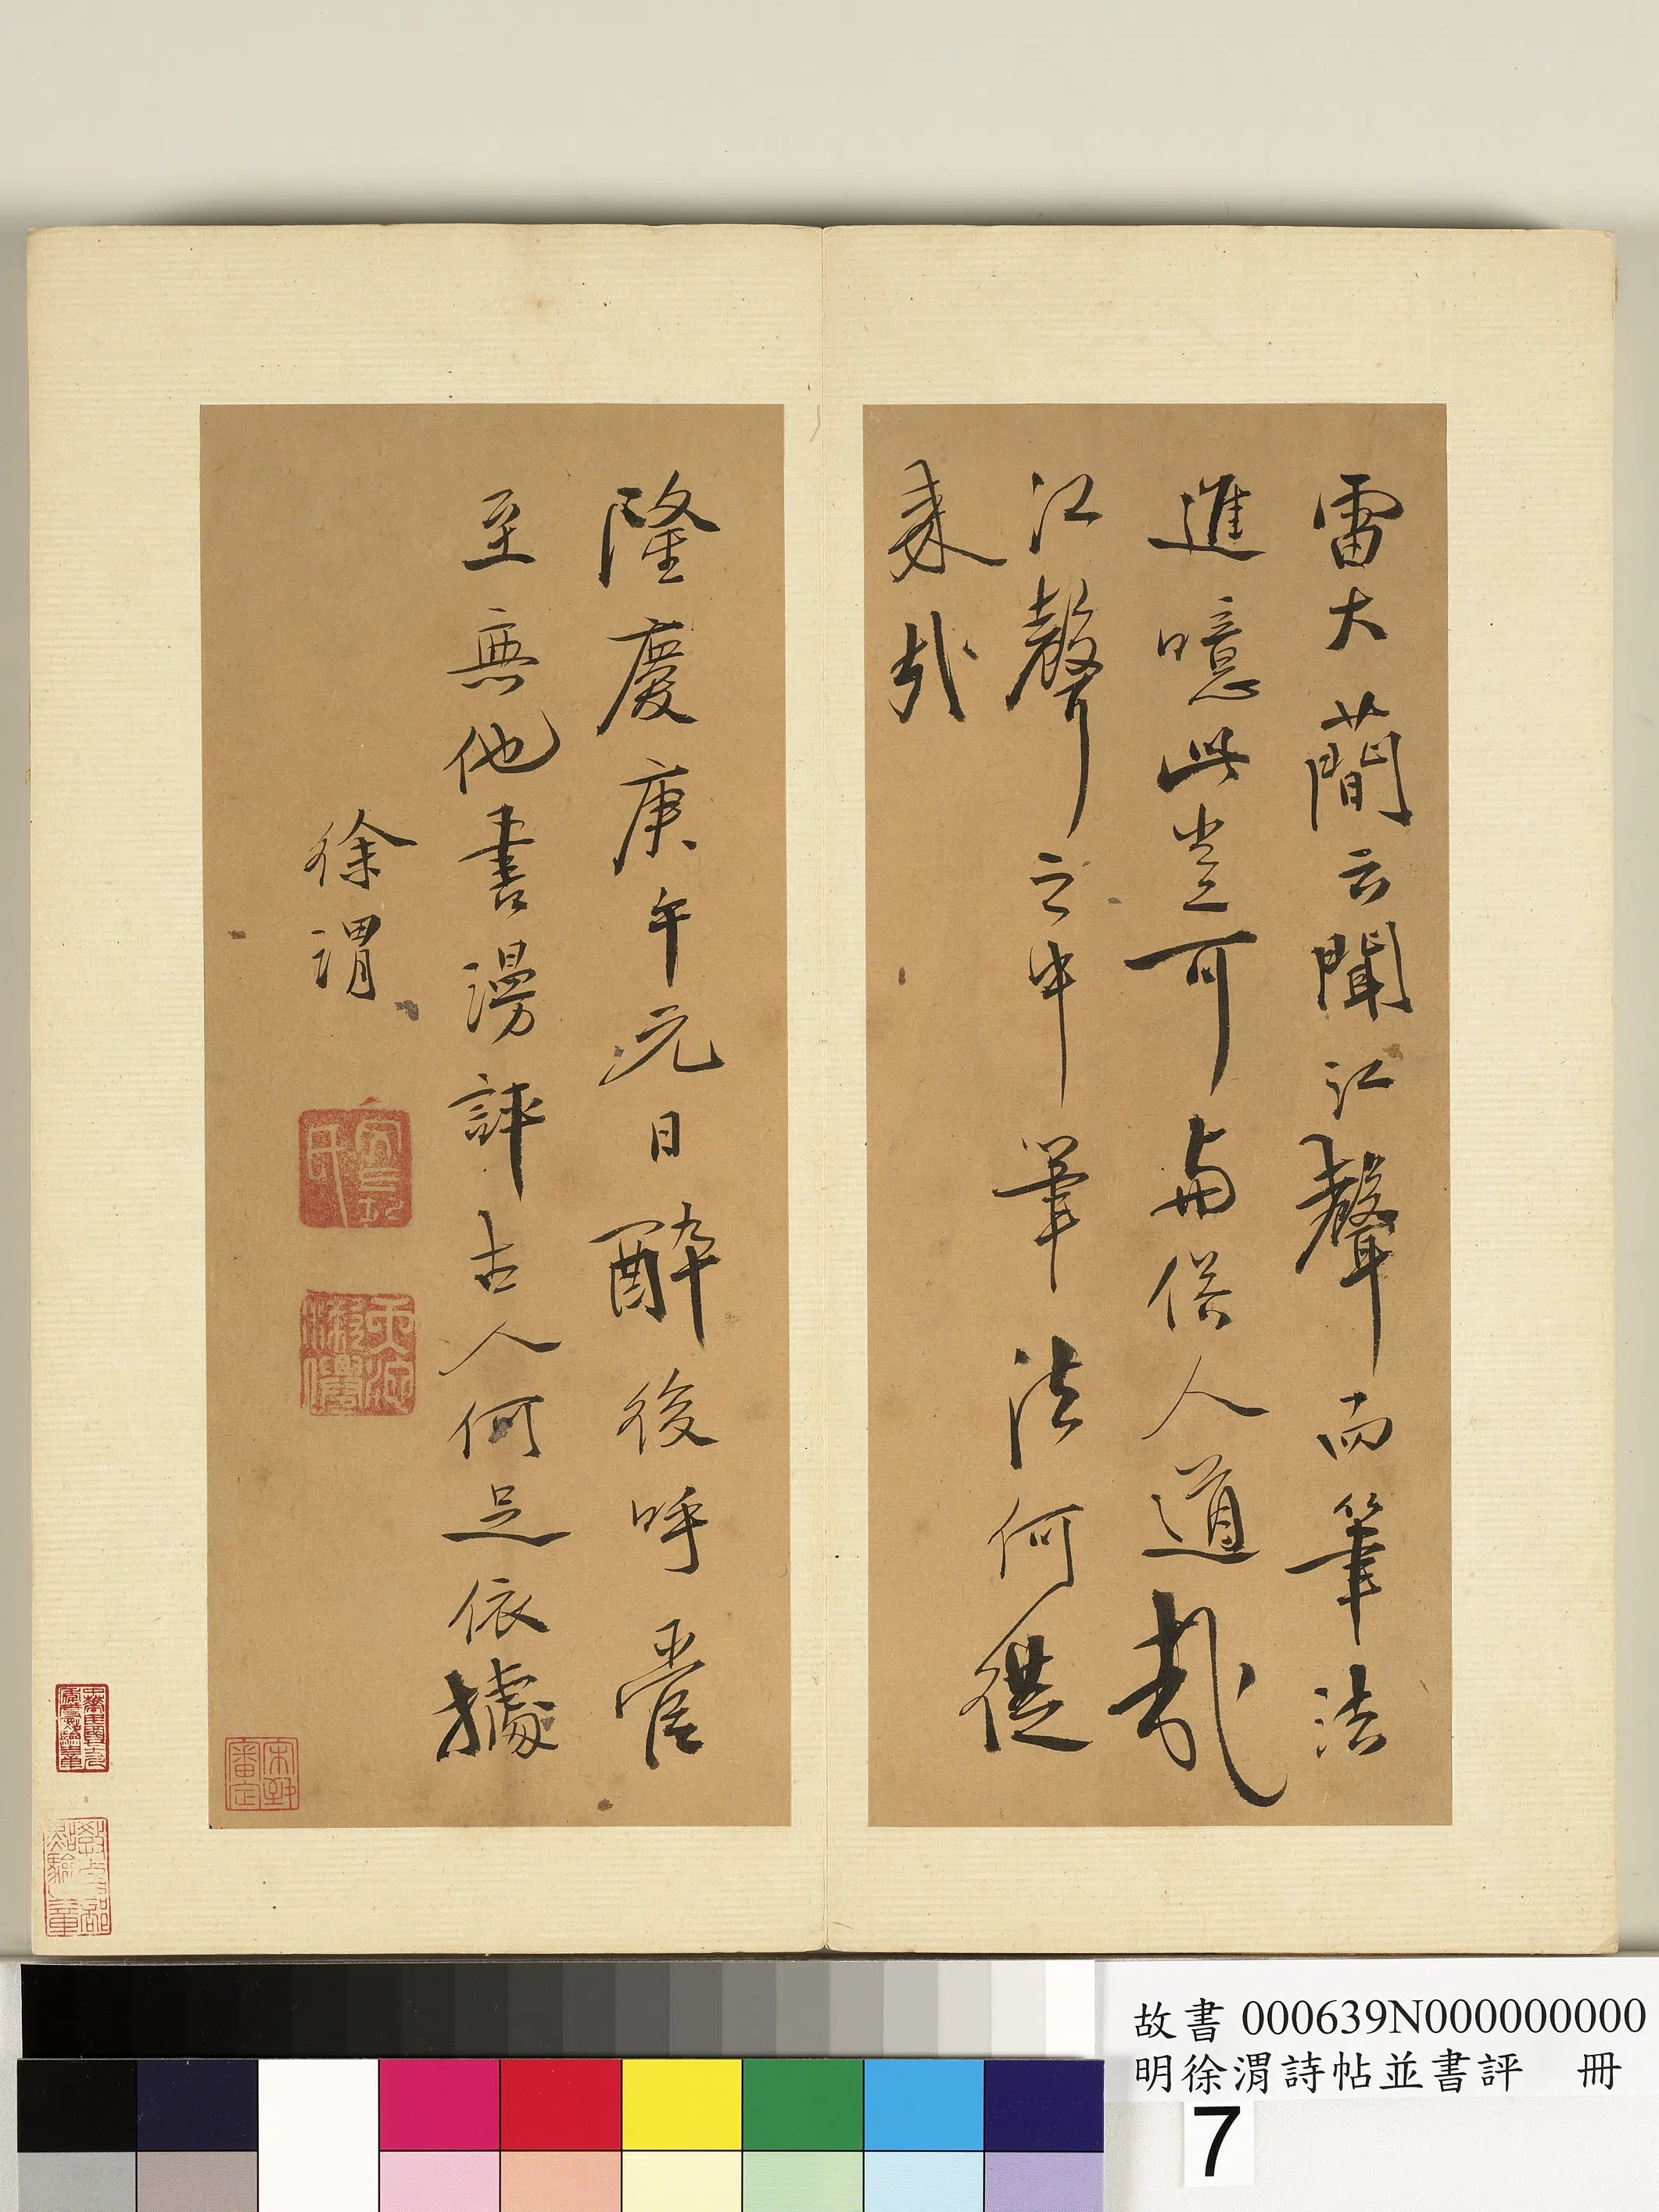 雷大蕳云聞江聲而筆法
進噫此豈可與俗人道哉
江聲之中筆法何從
來哉
隆慶庚午元日醉後呼管
至無他書漫評古人何足依據
徐渭
天池
漱僊
宋犖
審定
教育部
點驗之章
故書000639N000000000
明徐渭詩帖並書評 冊
7